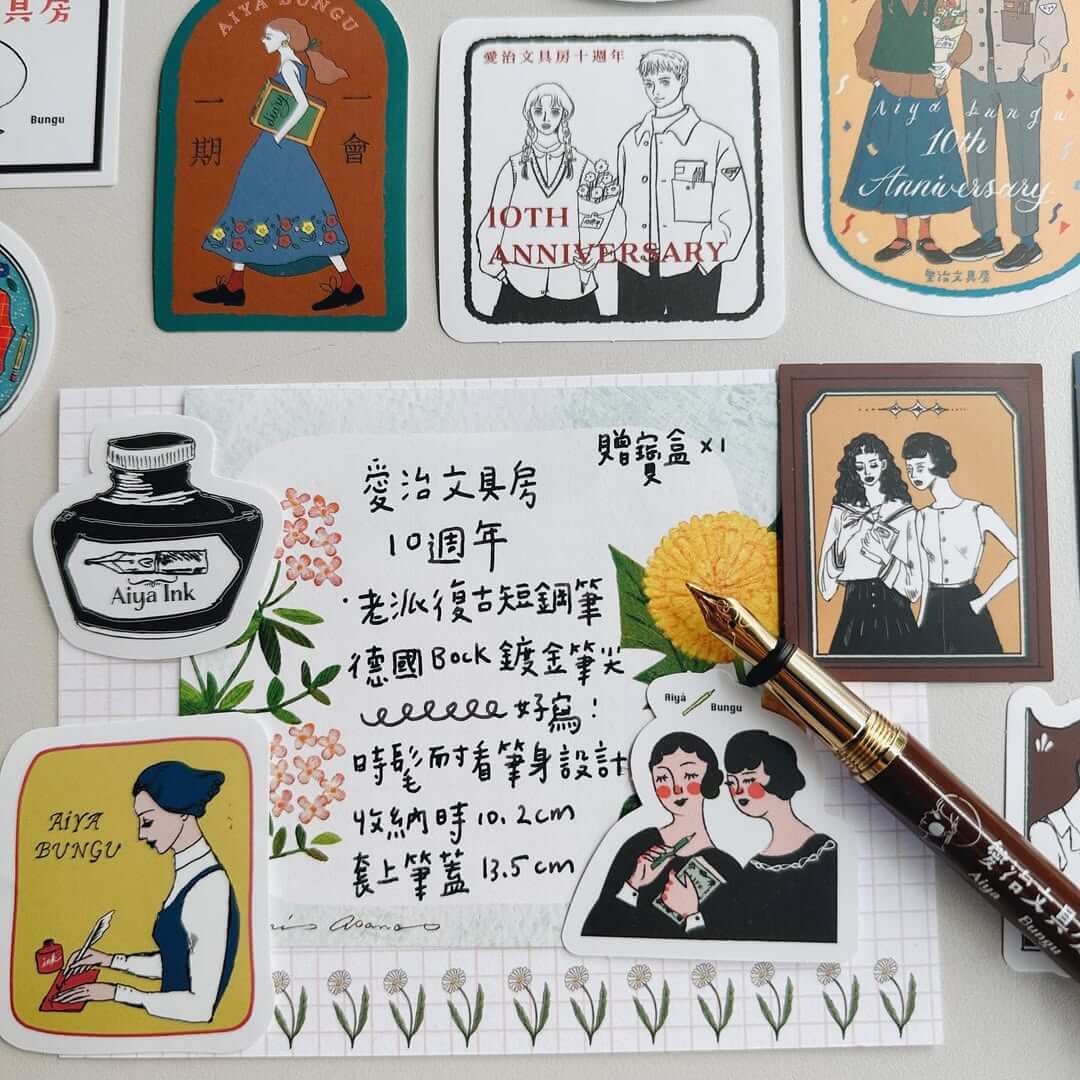 具房
Bungu
AIYA BUNGU
一期
一會
diary
愛治文具房十週年
10TH
ANNIVERSARY
Aiya bungu
10th
Anniversary
愛治文具房
贈寶盒 x1
愛治文具房
10週年
·老派復古短鋼筆
德國Bock鍍金筆尖
好寫!
時髦耐看筆身設計
收納時 10.2cm
套上筆蓋 13.5cm
Aiya Ink
AiYA
BUNGU
ink
Aiyà
Bungu
愛治文具
Aiya Bungu